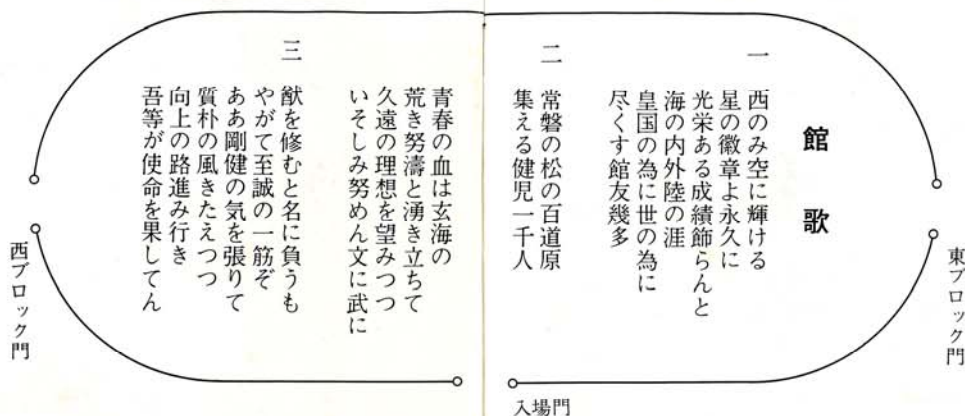 館歌
一
西のみ空に輝ける
星の徽章よ永久に
光栄ある成績飾らんと
海の内外陸の涯
皇国の為に世の為に
尽くす館友幾多
二
常磐の松の百道原
集える健児一千人
青春の血は玄海の
荒き努濤と湧き立ちて
久遠の理想を望みつつ
いそしみ努めん文に武に
三
猷を修むと名に負うも
やがて至誠の一筋ぞ
ああ剛健の気を張りて
質朴の風きたえつつ
向上の路進み行き
吾等が使命を果してん
東ブロック門
入場門
西ブロック門